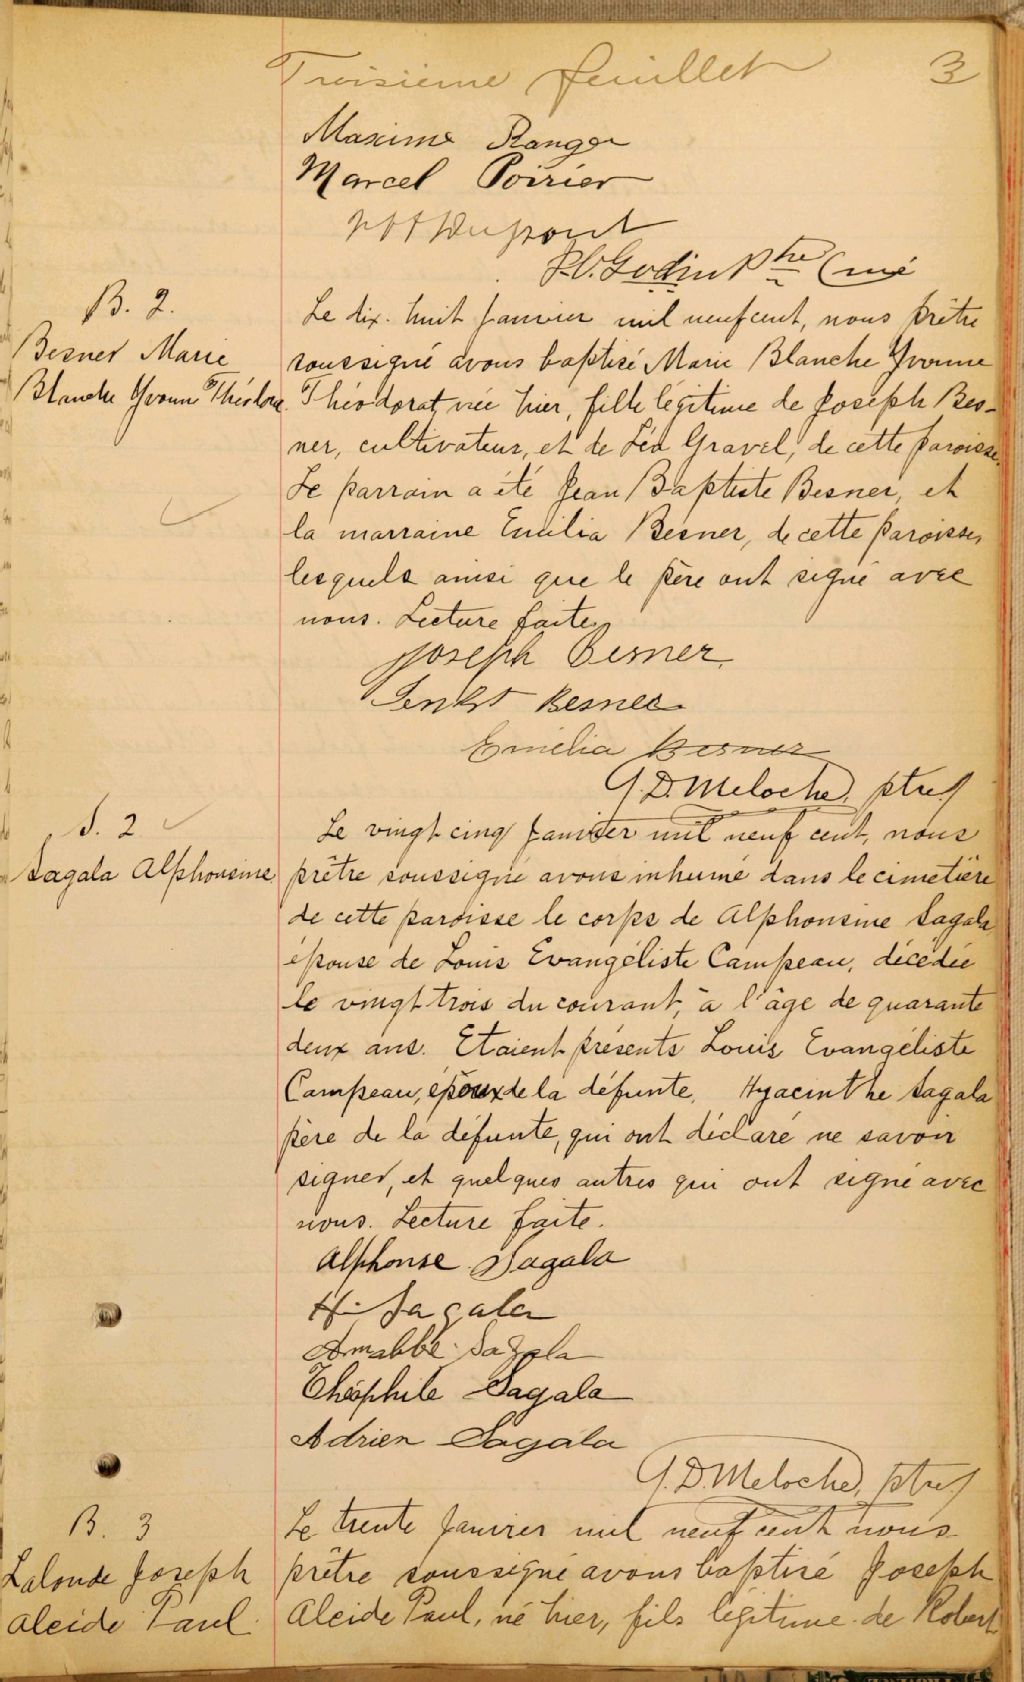 Troisième feuillet 3
Maxime Ranger
Marcel Poirier
Dupont
J.O. Godin Ptre Curé
B. 2.
Besner Marie
Blanche Yvonne Théodora
Le dix-huit Janvier mil neuf cent, nous prêtre
soussigné avons baptisé Marie Blanche Yvonne
Théodorat, née hier, fille légitime de Joseph Bes-
ner, cultivateur, et de Léa Gravel, de cette paroisse.
Le parrain a été Jean Baptiste Besner, et
la marraine Emilia Besner, de cette paroisse,
lesquels ainsi que le père ont signé avec
nous. Lecture faite.
Joseph Besner
Besner
Emélia Besner
G.D. Meloche, ptre
S. 2
Sagala Alphonsine
Le vingt cinq Janvier mil neuf cent, nous
prêtre soussigné avons inhumé dans le cimetière
de cette paroisse le corps de Alphonsine Sagala,
épouse de Louis Evangéliste Campeau, décédée
le vingt trois du courant, à l'âge de quarante
deux ans. Etaient présents Louis Evangéliste
Campeau, époux de la défunte, Hyacinthe Sagala
père de la défunte, qui ont déclaré ne savoir
signer, et quelques autres qui ont signé avec
nous. Lecture faite.
Alphonse Sagala
H. Sagala
Sagala
Théophile Sagala
Adrien Sagala
G.D. Meloche, ptre
B. 3
Lalonde Joseph
Alcide Paul
Le trente Janvier mil neuf cent nous
prêtre soussigné avons baptisé Joseph
Alcide Paul, né hier, fils légitime de Robert